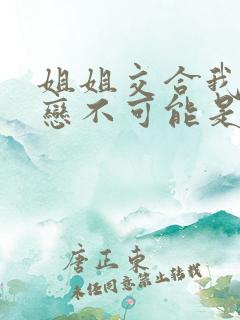 姐姐交合我
戀不可能是
唐正東
未經同意禁止轉載